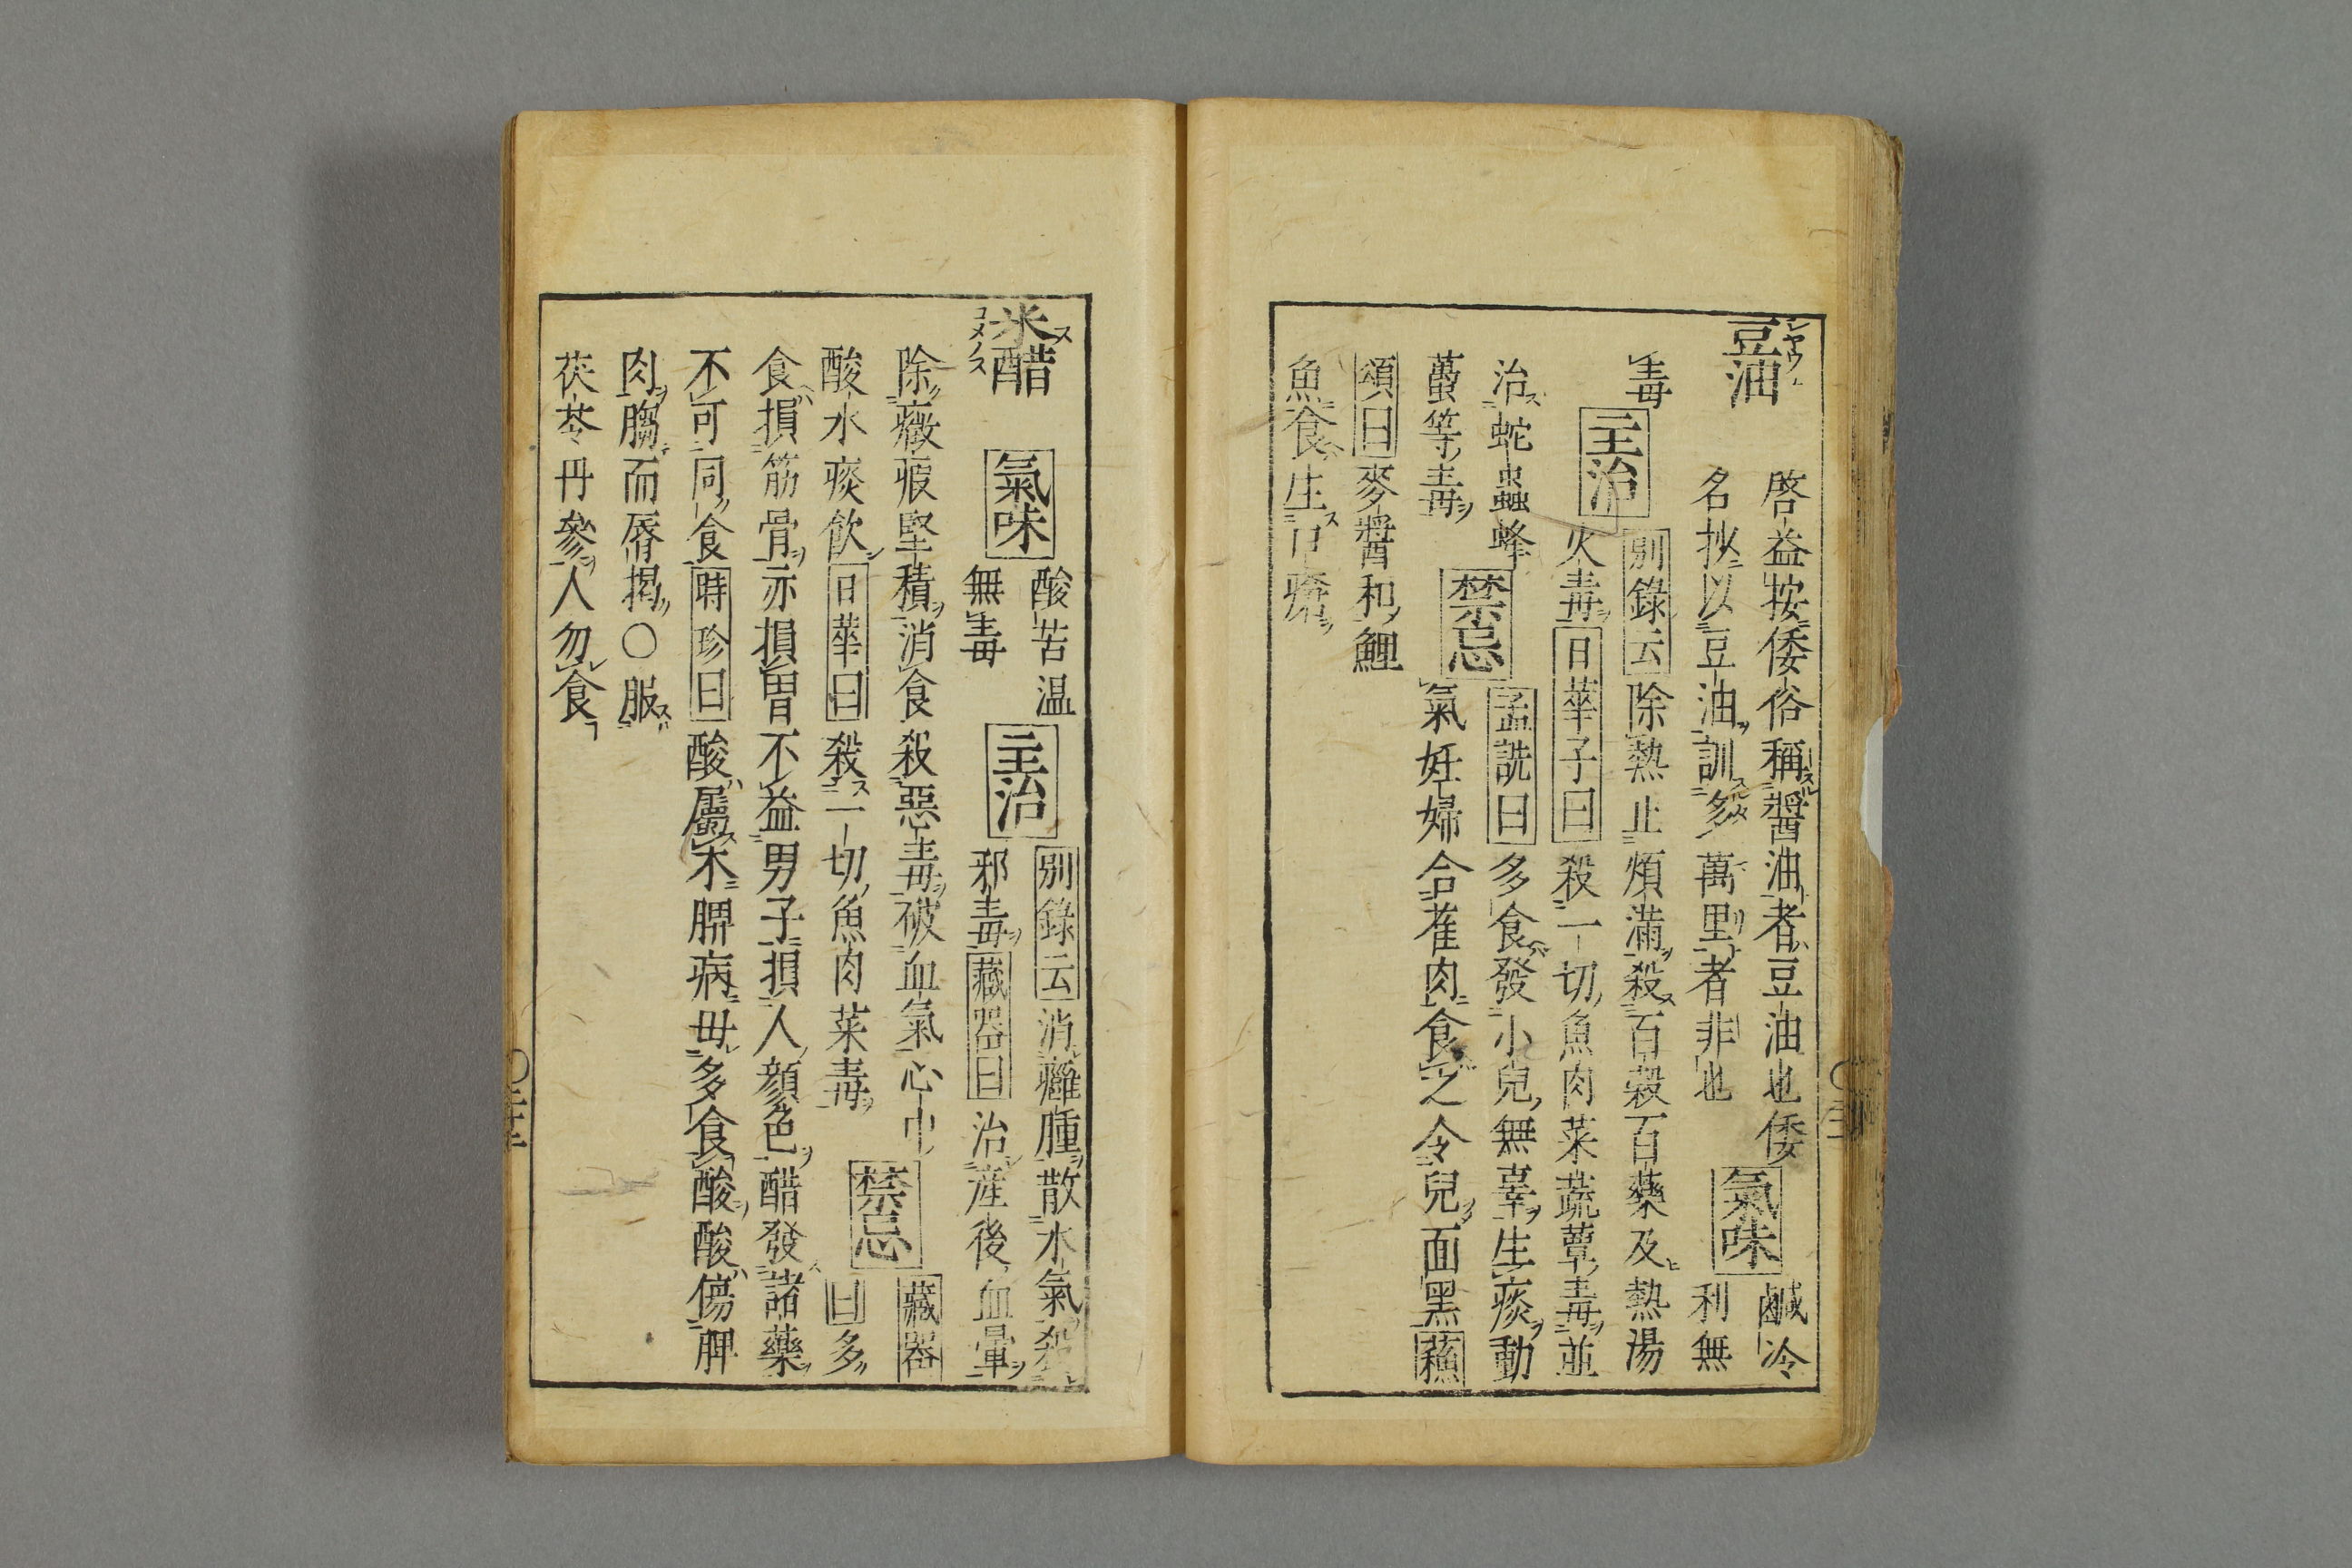 豆油
シヤウユ
啓益按倭俗稱醬油者豆油也倭
名抄以豆油訓多萬里者非也
氣味
鹹冷
利無
毒
主治
別錄云除熱止煩滿殺百穀百藥及熱湯
火毒日華子曰殺一切魚肉菜蔬蕈毒並
治蛇蟲蜂
蠆等毒
禁忌
孟詵曰多食發小兒無辜生痰動
氣妊婦合雀肉食之令兒面黑蘇
頌曰麥醬和鯉
魚食生口瘡
米醋
ス
コメノス
氣味
酸苦温
無毒
主治
別錄云消癰腫散水氣殺
邪毒藏器曰治產後血暈
除癥瘕堅積消食殺惡毒破血氣心中
酸水痰飲日華曰殺一切魚肉菜毒
禁忌
藏器
曰多
食損筋骨亦損胃不益男子損人顔色醋發諸藥
不可同食時珍曰酸屬木脾病毋多食酸酸傷脾
肉䐢而唇揭〇服
茯苓丹參人勿食